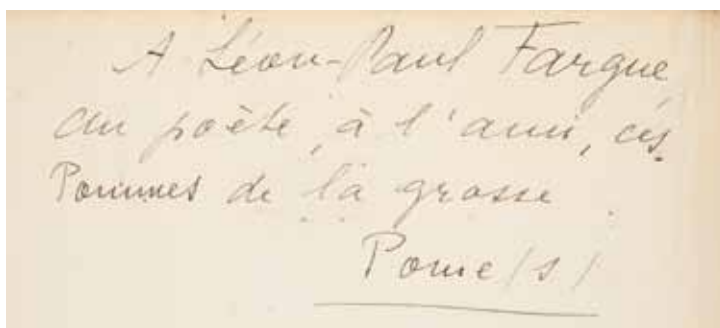 A Léon-Paul Fargue
au poète, à l'ami, ces
Pommes de la grosse
Pome(s)